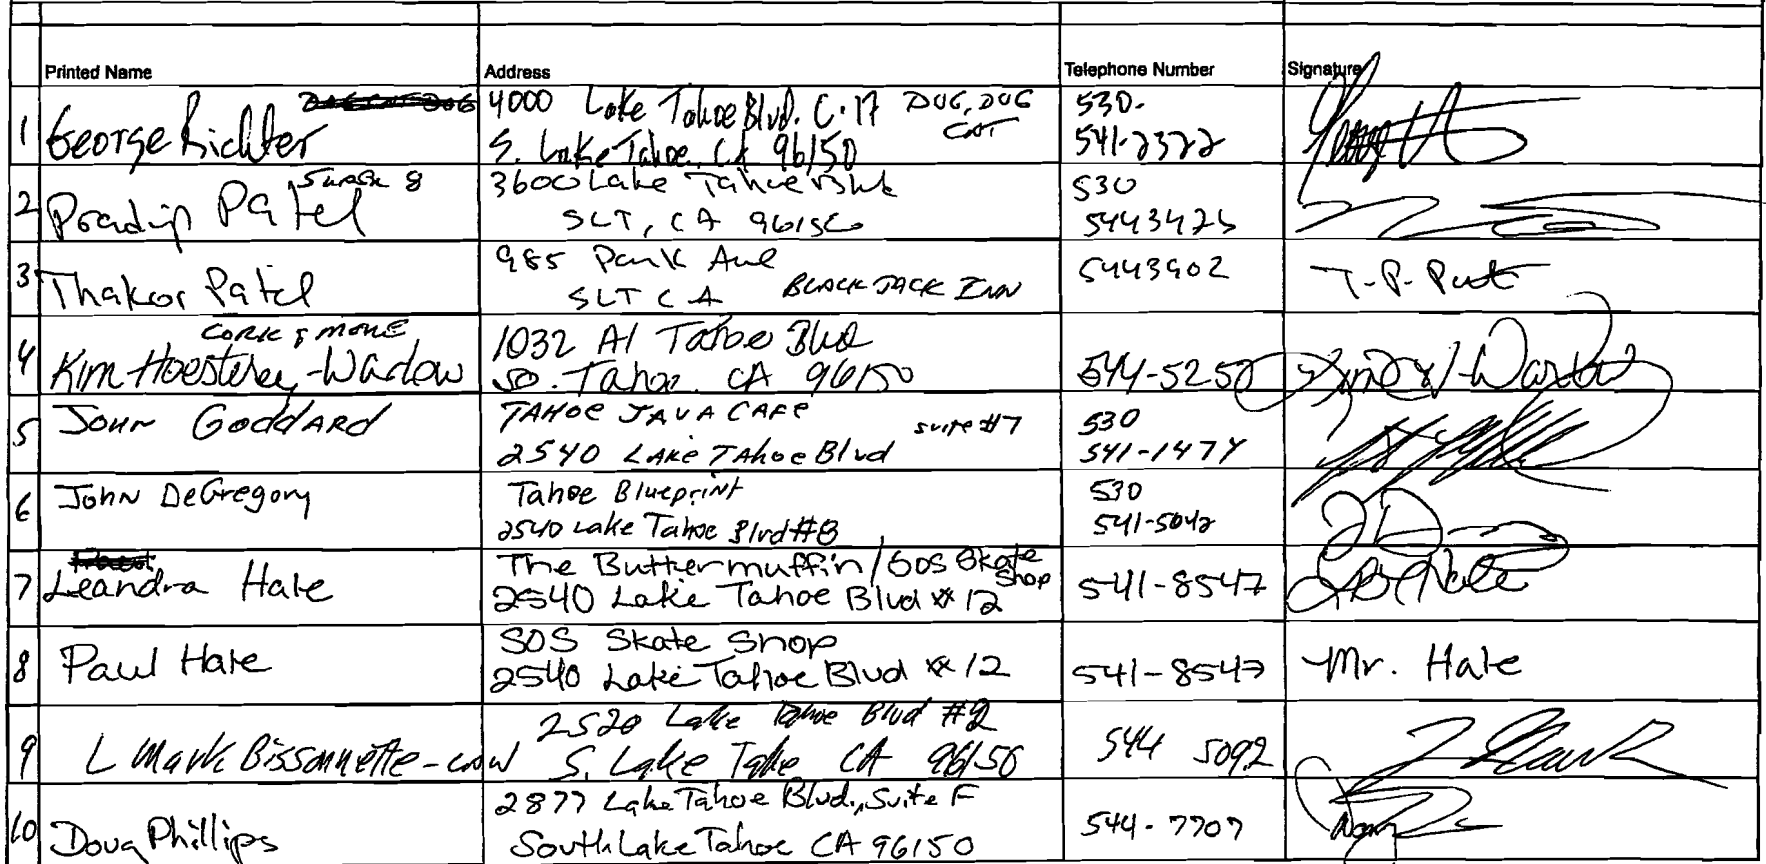 Printed Name Address Telephone Number Signature
1 George Richter 4000 Lake Tahoe Blvd. C-17 DOG, DOG CAT 530-
S. Lake Tahoe, CA 96150 541-2322
2 Pradip Patel Super 8 3600 Lake Tahoe Blvd 530
SLT, CA 96150 5443476
3 Thakor Patel 985 Park Ave 5443902 T.P. Patel
SLT CA BLACK JACK INN
CORK & MORE
4 Kim Hoesterey-Wadlow 1032 Al Tahoe Blvd
So. Tahoe. CA 96150 544-5250
5 John Goddard TAHOE JAVA CAFE suite #7 530
2540 LAKE TAHOE Blvd 541-1474
6 John DeGregory Tahoe Blueprint 530
2540 Lake Tahoe Blvd #8 541-5042
7 Leandra Hale The Buttermuffin/SOS Skate Shop 541-8547
2540 Lake Tahoe Blvd #12
8 Paul Hale SOS Skate Shop Mr. Hale
2540 Lake Tahoe Blvd #12 541-8547
9 L Mark Bissonnette- 2520 Lake Tahoe Blvd #2 544 5092
S. Lake Tahoe CA 96150
10 Doug Phillips 2877 Lake Tahoe Blvd., Suite F 544-7707
South Lake Tahoe CA 96150